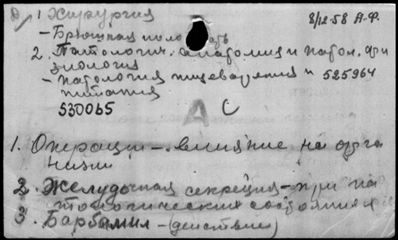 1 Хирургия
8/12-58 А.Ф.
– Брюшная полость
2. Патологич. анатомия и патол. физиология
– патология пищеварения и 525964
питания
530065
А С
1. Операции – влияние на организм
2. Желудочная секреция – при патологических состояниях
3. Барбамил – (действие)